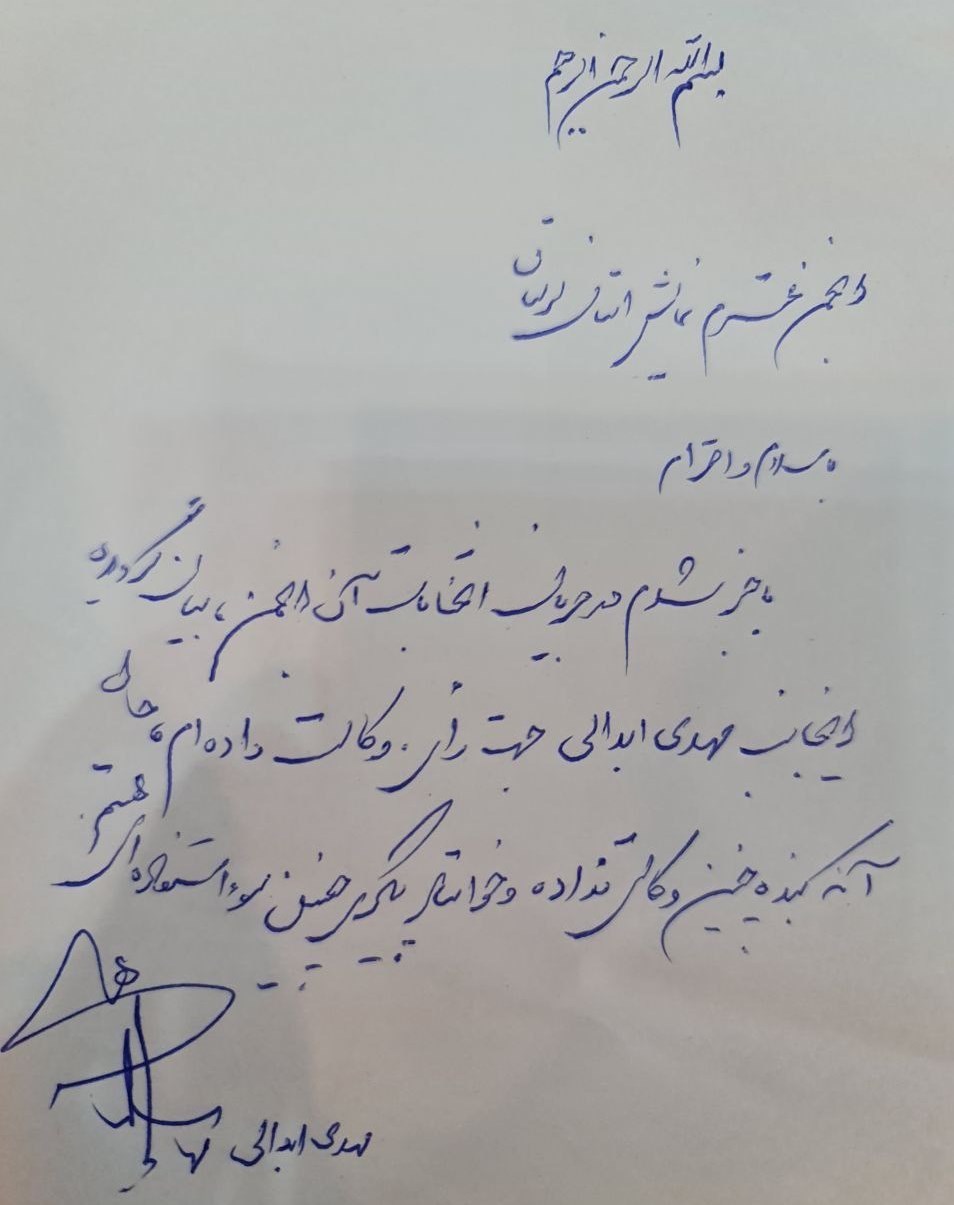 بسم الله الرحمن الرحیم
انجمن محترم نمایش استان لرستان
با سلام و احترام
با خبر شدم در جریان انتخابات آن انجمن، بیان گردیده
اینجانب مهدی ابدالی جهت رأی وکالت داده ام، حال
آنکه بنده چنین وکالتی نداده و خواستار پیگیری چنین سوء استفاده ای هستم
مهدی ابدالی